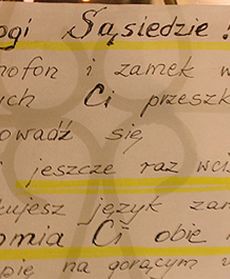 ogi Sąsiedzie!
nofon i zamek w
ych Ci przeszk
owadź się
jeszcze raz wci
kujesz język zam
omia Ci obie
pie na gorącym u